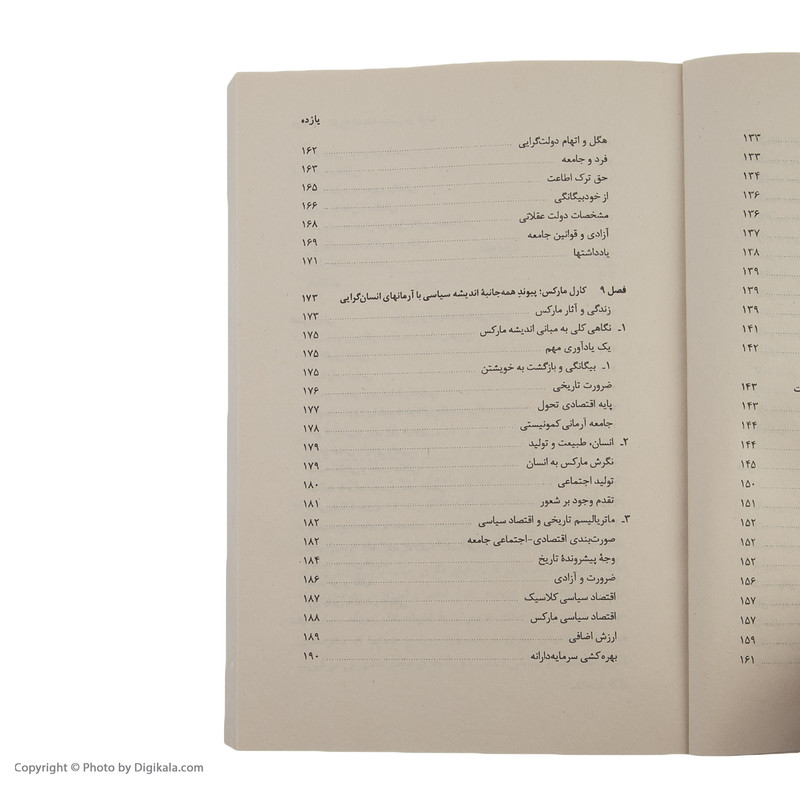 ۱۳۳
۱۳۳
۱۳۴
۱۳۶
۱۳۶
۱۳۷
۱۳۸
۱۳۹
۱۳۹
۱۳۹
۱۴۱
۱۴۲
۱۴۳
۱۴۳
۱۴۴
۱۴۴
۱۴۵
۱۵۰
۱۵۱
۱۵۲
۱۵۲
۱۵۲
۱۵۶
۱۵۷
۱۵۷
۱۵۹
۱۶۱
یازده
هگل و اتهام دولت‌گرایی ۱۶۲
فرد و جامعه ۱۶۳
حق ترک اطاعت ۱۶۵
از خودبیگانگی ۱۶۶
مشخصات دولت عقلانی ۱۶۸
آزادی و قوانین جامعه ۱۶۹
یادداشتها ۱۷۱
فصل ۹ کارل مارکس؛ پیوندِ همه‌جانبهٔ اندیشه سیاسی با آرمانهای انسان‌گرایی ۱۷۳
زندگی و آثار مارکس ۱۷۳
۱ـ نگاهی کلی به مبانی اندیشه مارکس ۱۷۵
یک یادآوری مهم ۱۷۵
۱ـ بیگانگی و بازگشت به خویشتن ۱۷۵
ضرورت تاریخی ۱۷۶
پایه اقتصادی تحول ۱۷۷
جامعه آرمانی کمونیستی ۱۷۸
۲ـ انسان، طبیعت و تولید ۱۷۹
نگرش مارکس به انسان ۱۷۹
تولید اجتماعی ۱۸۰
تقدم وجود بر شعور ۱۸۱
۳ـ ماتریالیسم تاریخی و اقتصاد سیاسی ۱۸۲
صورت‌بندی اقتصادی-اجتماعی جامعه ۱۸۲
وجهٔ پیشروندهٔ تاریخ ۱۸۴
ضرورت و آزادی ۱۸۶
اقتصاد سیاسی کلاسیک ۱۸۷
اقتصاد سیاسی مارکس ۱۸۸
ارزش اضافی ۱۸۹
بهره‌کشی سرمایه‌دارانه ۱۹۰
Copyright © Photo by Digikala.com